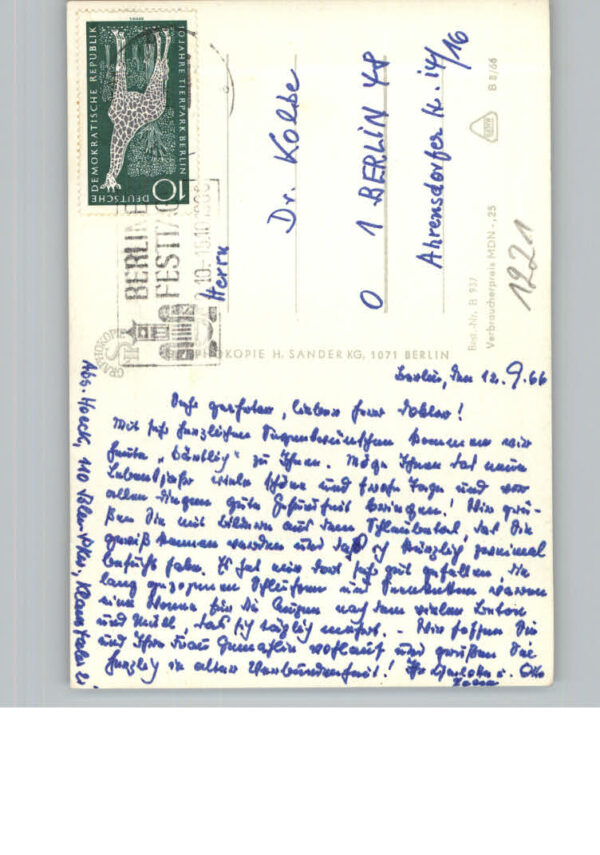 10 JAHRE TIERPARK BERLIN
DEUTSCHE DEMOKRATISCHE REPUBLIK
10
BERLINER
FESTTAGE
Herrn
Dr. Kolbe
1 BERLIN 48
Ahrensdorfer
1221
B 8/66
Best.-Nr. B 937
Verbraucherpreis MDN -,25
GRAPHOKOPIE H. SANDER KG, 1071 BERLIN
Berlin, den 12.9.66
Sehr geehrter, lieber Herr Doktor!
Mit sehr herzlichen Segenswünschen kommen wir
heute zu Ihnen. Möge Ihnen das neue
Lebensjahr viele schöne und frohe Tage und vor
allen Dingen gute Gesundheit bringen! Wir grü-
ßen Sie mit Bildern aus dem Schlaubetal, das Sie
gewiß kennen werden und das ich kürzlich zweimal
besucht habe. Es hat mir dort sehr gut gefallen, die
lang gezogenen und waren
eine Wonne für die Augen nach dem vielen Beton
und Müll, das sich täglich mehrt. - Wir hoffen Sie
und Ihre Frau Gemahlin wohlauf und grüßen Sie
herzlich in alter Verbundenheit! Ihre u. Otto
Abs. 110 Bln.